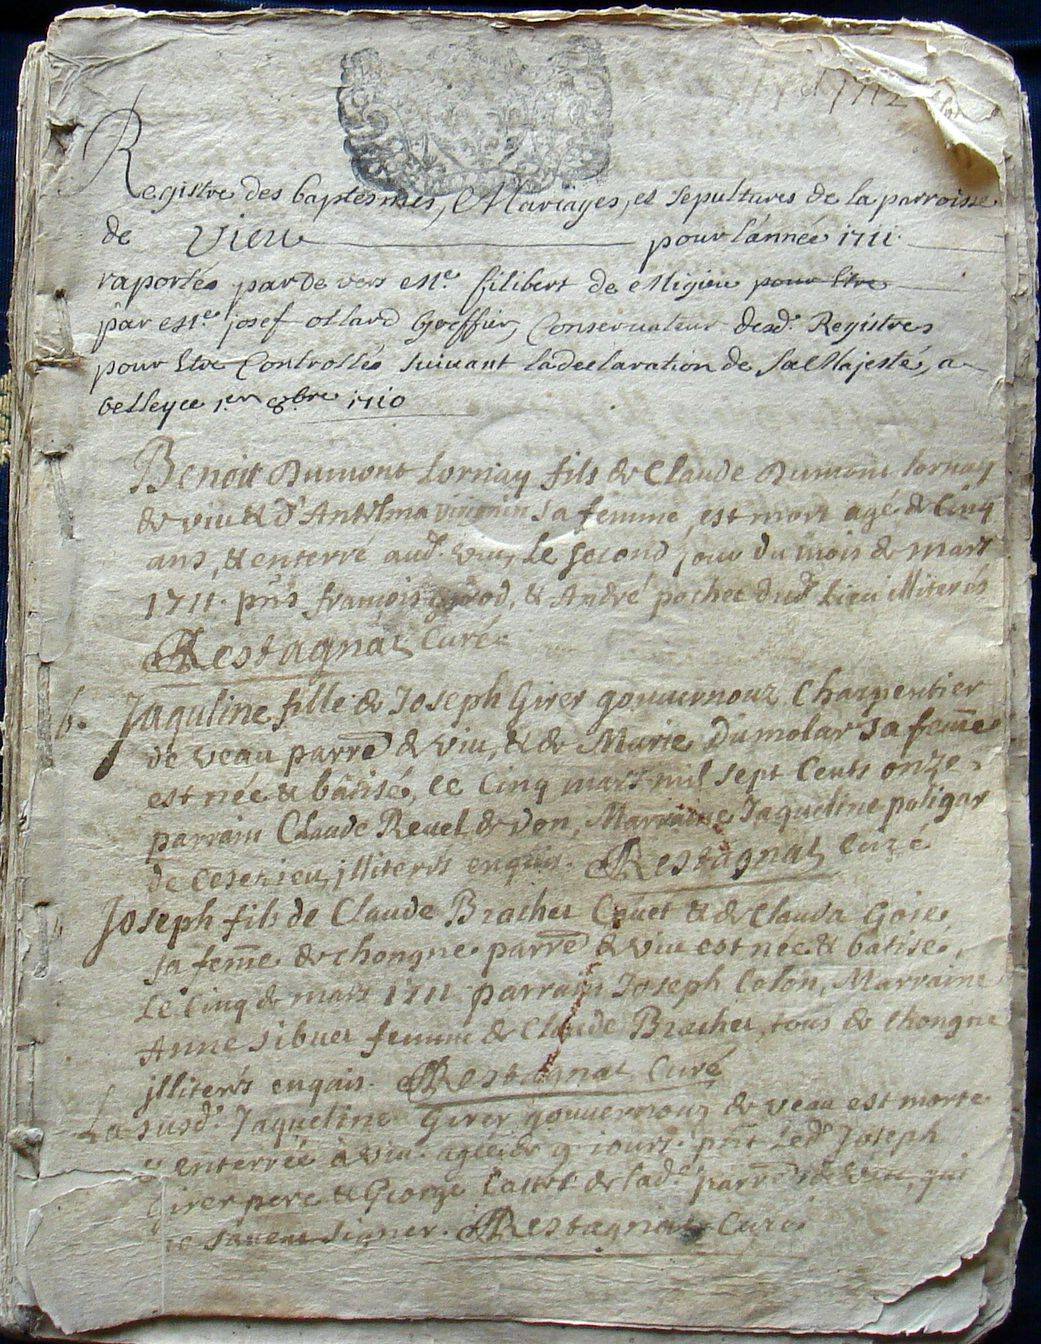 1712
Registre des baptesmes, Mariages, et sepultures de la parroisse
de Vieu pour l'année 1711.
raportés par de vers Me. filibert de Migieu pour être
par Me. josef ollard Greffier, Conservateur desd. Registres
pour être Controllés suivant la declaration de Sa Majesté, a
belleyce 1er 8bre 1710
Benoit Dumont Lornay fils de Claude Dumont Lornay
de viu & d'Anthelma sa femme, est mort agé de Cinq
ans, & enterré aud. viu, le second jour du mois de mars
1711. pns françois & André pochet dud. Lieu illiterés
Restagnat Curé
b. Jaquline fille de Joseph Girer gouvernouz Charpentier
de veau parre de viu, & de Marie Dumolar sa feme
est née & bâtisé, le Cinq mars mil sept Cents onze.
parrain Claude Revel de don, Marraine Jaqueline poligar
de Ceserieu illiterés enquis. Restagnat Curé
Joseph fils de Claude Bracher Couet & de Clauda Goie
sa feme de Chongne parre de viu est née & batisé,
Le Cinq de mars 1711. parrain Joseph Colon, Marraine
Anne Sibuet femme de Claude Bracher, tous de Chongne
illiterés enquis. Restagnat Curé
La susd. Jaqueline Girer gouvernouz de veau est morte
& enterrée à viu. agée de 9 jours. pnt Led. Joseph
Girer pere & George de lad. parre de viu, qui
ne savent signer. Restagnat Curé